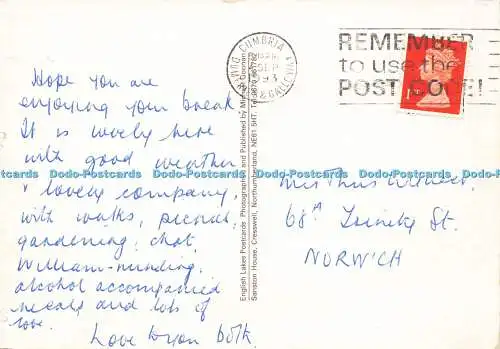 Hope you are
enjoying your break
It is lovely here
with good weather
& lovely company,
with walks, picnics,
gardening, chat,
William-minding,
alcohol accompanied
meals and lots of
love.
Love to you both.
CUMBRIA
DUMFRIES & GALLOWAY
REMEMBER
to use the
POST CODE!
English Lakes Postcards Photographed and Published by
Sanston House, Cresswell, Northumberland, NE61 5HT. Tel:
68A Trinity St.
NORWICH
Dodo-Postcards Dodo-Postcards Dodo-Postcards Dodo-Postcards